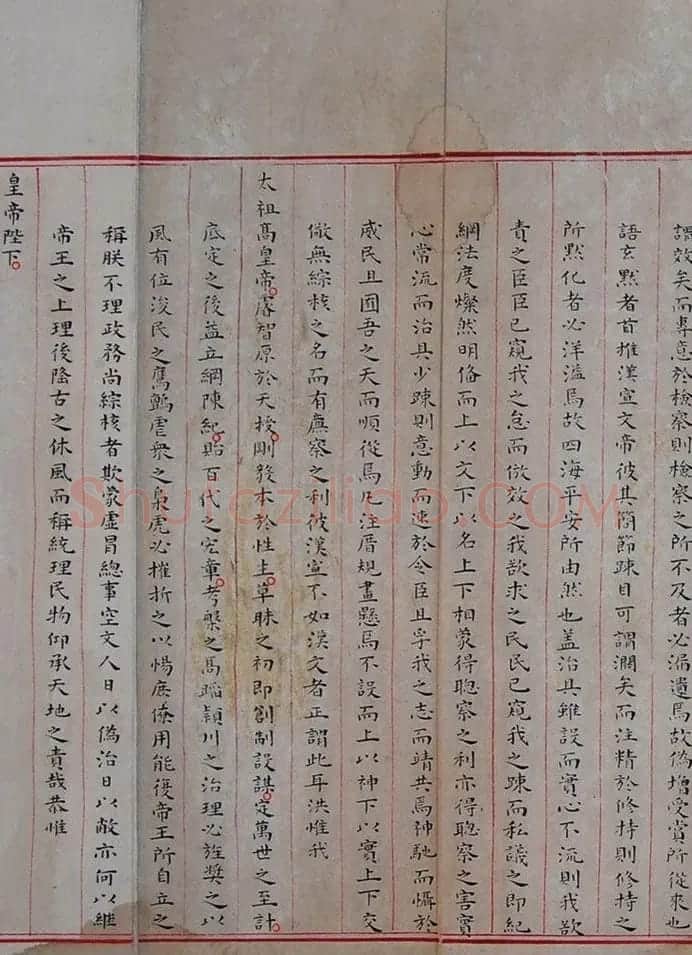 謂效矣而專意於檢察則檢察之所不及者必漏遺焉故偽增受賞所從來也
語玄黙者首推漢宣文帝彼其簡節疎目可謂濶矣而注精於修持則修持之
所黙化者必洋溢焉故四海平安所由然也盖治具雖設而實心不流則我欲
責之臣臣已窺我之怠而倣效之我欲求之民民已窺我之疎而私議之即紀
綱法度燦然明備而上以文下以名上下相蒙得聰察之利亦得聰察之害實
心常流而治具少疎則意動而速於令臣且孚我之志而靖共焉神馳而懾於
威民且囿吾之天而順從焉凡注厝規畫懸焉不設而上以神下以實上下交
儆無綜核之名而有廉察之利彼漢宣不如漢文者正謂此耳洪惟我
太祖高皇帝睿智原於天授剛發本於性生草昧之初即創制設謀定萬世之至計
底定之後益立綱陳紀貽百代之宏章考槃之髙蹈潁川之治理必旌奬之以
風有位浚民之鷹鸇虐衆之梟虎必摧折之以惕庶僚用能復帝王所自立之
稱朕不理政務尚綜核者欺蒙虛冒總事空文人日以偽治日以敝亦何以繼
帝王之上理後隆古之休風而稱統理民物仰承天地之責哉恭惟
皇帝陛下
Shufaziliao.COM